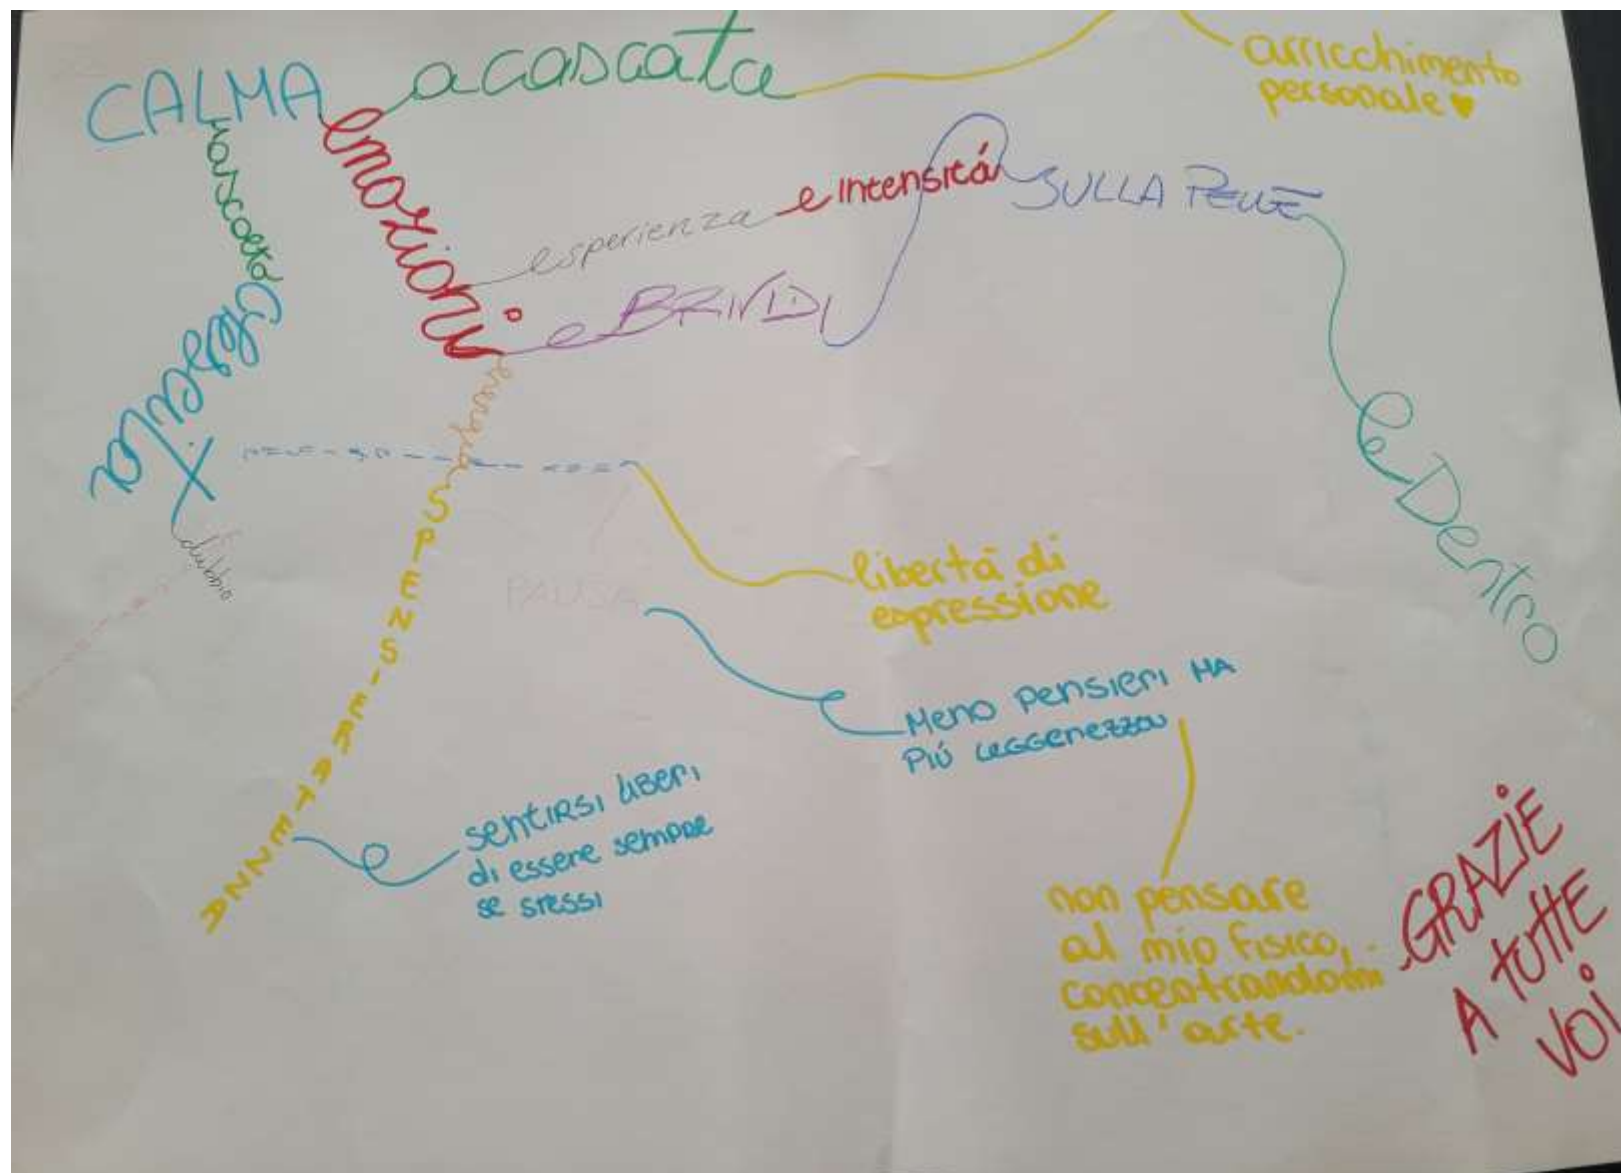 CALMA
a cascata
arricchimento
personale
emozioni
esperienza e intensitá
e BRIVIDI
SULLA PELLE
e Dentro
nascosta
Crescita
dubbio
SPENSIERATEZZA
libertà di
espressione
PAUSA
Meno pensieri MA
PIÚ LEGGEREZZA
SENTIRSI LIBERI
di essere sempre
se stessi
non pensare
al mio fisico,
concentrandomi
sull'arte.
GRAZIE
A TUTTE
VOI